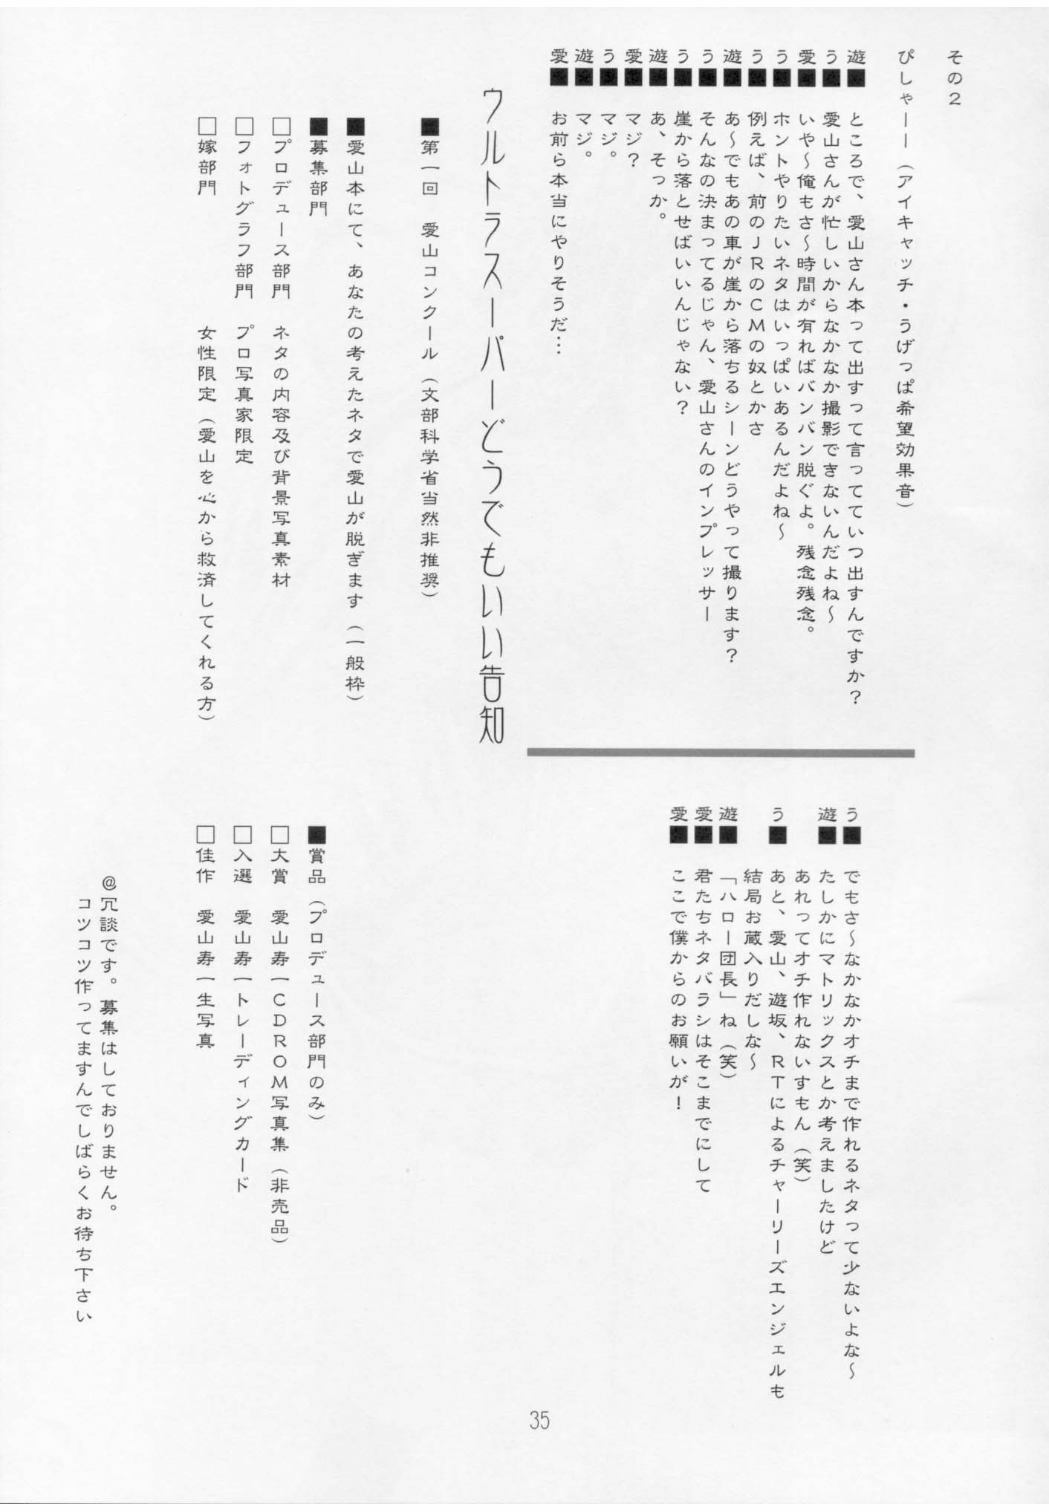 その2
ぴしゃーー(アイキャッチ・うげっぱ希望効果音)
遊■ ところで、愛山さん本って出すって言ってていつ出すんですか?
う■ 愛山さんが忙しいからなかなか撮影できないんだよね~
愛■ いや~俺もさ~時間が有ればバンバン脱ぐよ。残念残念。
う■ ホントやりたいネタはいっぱいあるんだよね~
う■ 例えば、前のJRのCMの奴とかさ
遊■ あ~でもあの車が崖から落ちるシーンどうやって撮ります?
う■ そんなの決まってるじゃん、愛山さんのインプレッサー
う■ 崖から落とせばいいんじゃない?
遊■ あ、そっか。
愛■ マジ?
う■ マジ。
遊■ マジ。
愛■ お前ら本当にやりそうだ…
う■ でもさ~なかなかオチまで作れるネタって少ないよな~
遊■ たしかにマトリックスとか考えましたけど
あれってオチ作れないすもん(笑)
う■ あと、愛山、遊坂、RTによるチャーリーズエンジェルも
結局お蔵入りだしな~
遊■ 「ハロー団長」ね(笑)
愛■ 君たちネタバラシはそこまでにして
愛■ ここで僕からのお願いが!
ウルトラスーパーどうでもいい告知
■第一回 愛山コンクール(文部科学省当然非推奨)
■愛山本にて、あなたの考えたネタで愛山が脱ぎます(一般枠)
■募集部門
□プロデュース部門 ネタの内容及び背景写真素材
□フォトグラフ部門 プロ写真家限定
□嫁部門 女性限定(愛山を心から救済してくれる方)
■賞品(プロデュース部門のみ)
□大賞 愛山寿一CDROM写真集(非売品)
□入選 愛山寿一トレーディングカード
□佳作 愛山寿一生写真
@冗談です。募集はしておりません。
コツコツ作ってますんでしばらくお待ち下さい
35